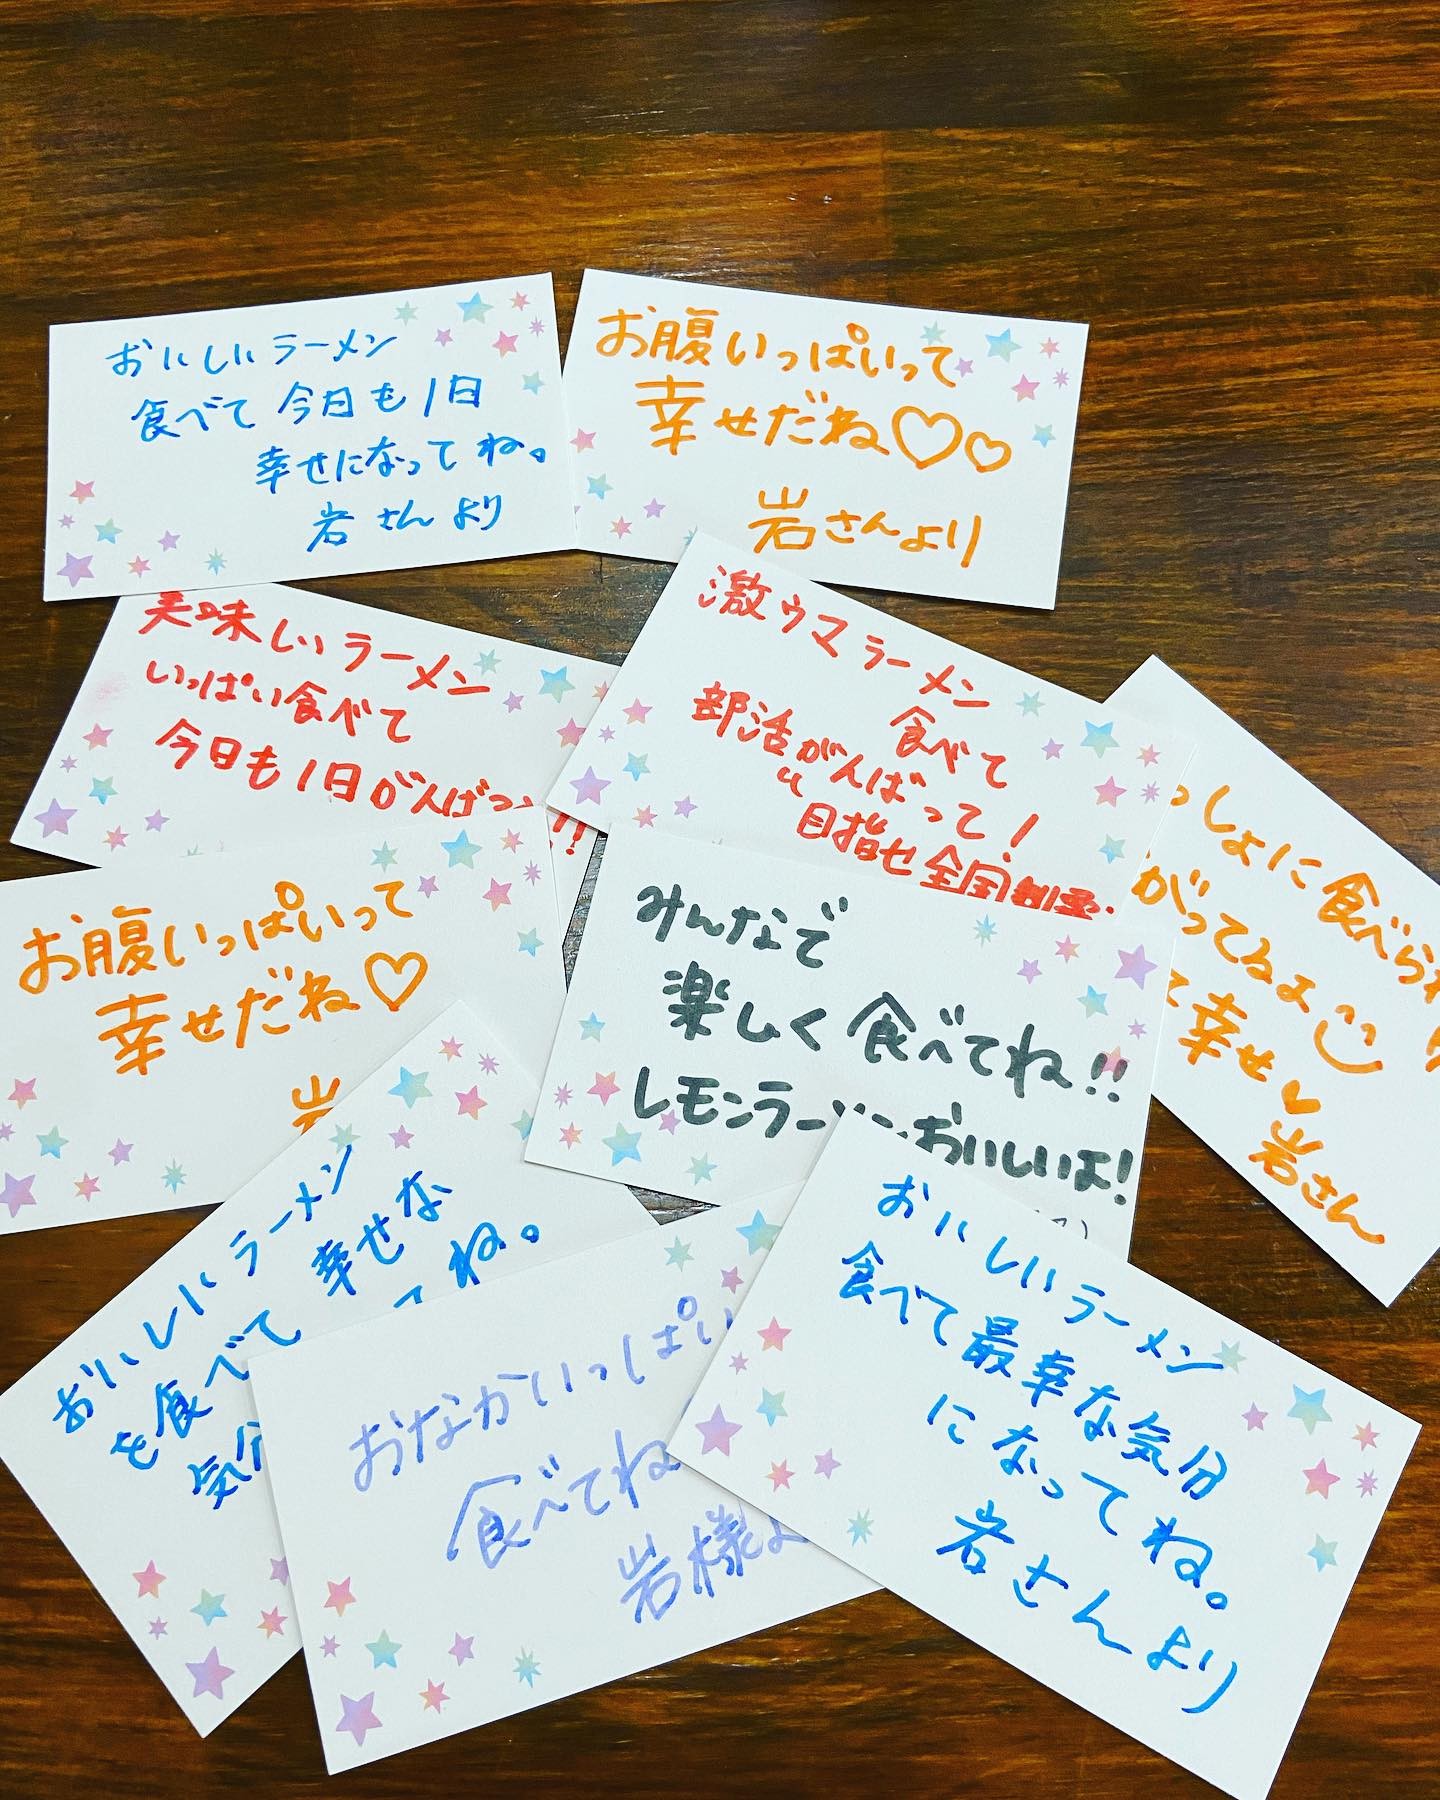 おいしいラーメン
食べて今日も1日
幸せになってね。
岩さんより
お腹いっぱいって
幸せだね♡♡
岩さんより
美味しいラーメン
いっぱい食べて
今日も1日がんばっ
!!
激ウマラーメン
食べて
部活がんばって!
目指せ全国制覇
っしょに食べられ
がってるよ
て幸せ♥
岩さん
お腹いっぱいって
幸せだね♡
岩
みんなで
楽しく食べてね!!
レモンラーメンおいしいよ!
おいしいラーメン
を食べて幸せな
気分 てね。
おなかいっぱい
食べてね
岩様よ
おいしいラーメン
食べて最幸な気分
になってね。
岩さんより